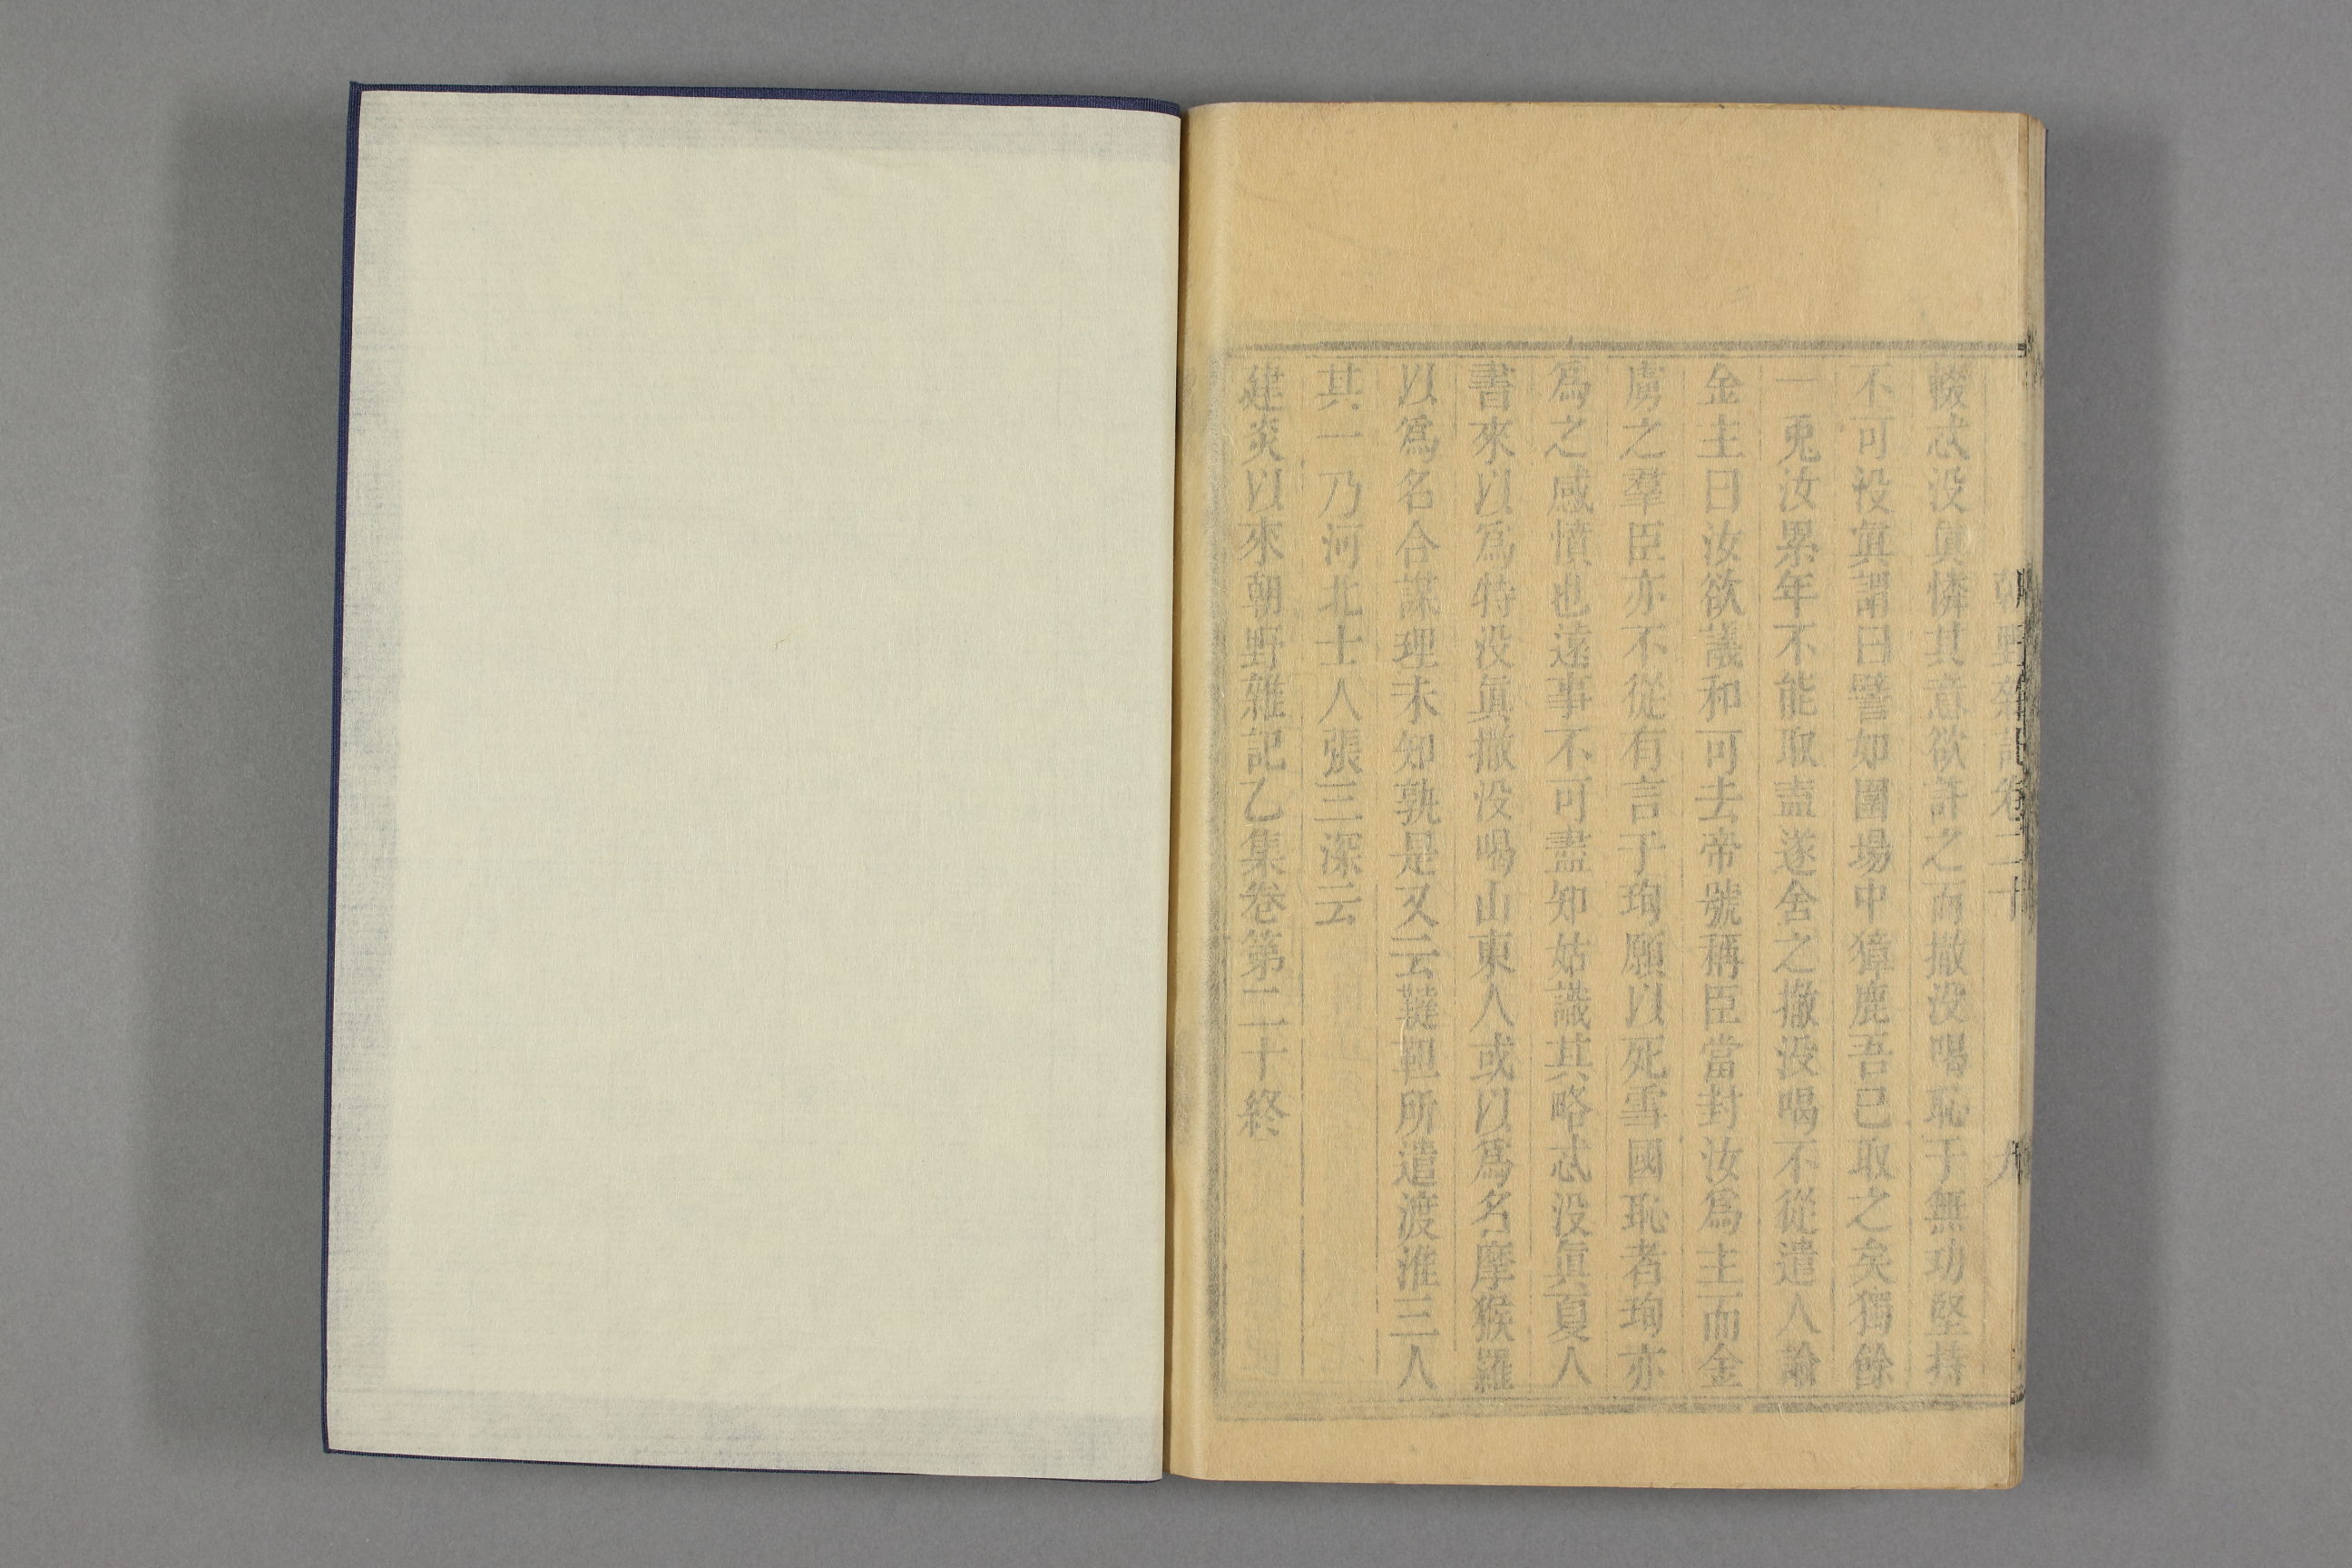 朝野雜記卷二十
輟忒没眞憐其意欲許之而撒没喝恥于無功堅持
不可没眞謂曰譬如圍場中獐鹿吾已取之矣獨餘
一兎汝累年不能取盍遂舍之撒没喝不從遣人諭
金主曰汝欲議和可去帝號稱臣當封汝爲主而金
虜之羣臣亦不從有言于珣願以死雪國恥者珣亦
爲之感憤也遠事不可盡知姑識其略忒没眞夏人
書來以爲特没眞撒没喝山東人或以爲名摩猴羅
以爲名合謀理未知孰是又云韃靼所遣渡淮三人
其一乃河北士人張三深云
建炎以來朝野雜記乙集卷第二十終